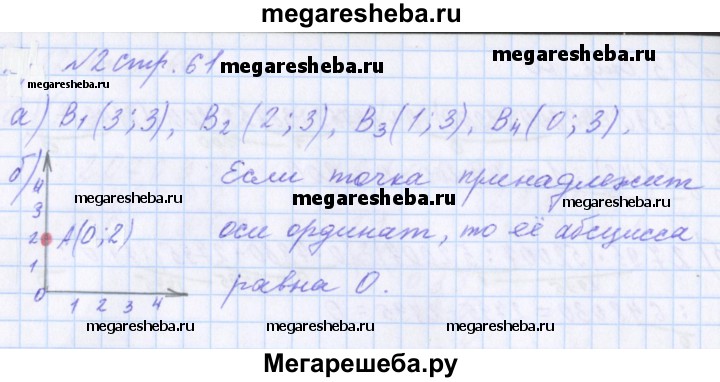 megaresheba.ru
№2 стр. 61
megaresheba.ru megaresheba.ru
а) B₁(3;3), B₂(2;3), B₃(1;3), B₄(0;3).
б)
4
3
2 A(0;2)
1
0
1 2 3 4
Если точка принадлежит
оси ординат, то её абсцисса
равна 0.
megaresheba.ru megaresheba.ru
megaresheba.ru megaresheba.ru
Мегарешеба.ру